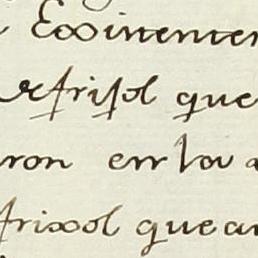 Eminenten
frisol que
ron en la a
frixol que an